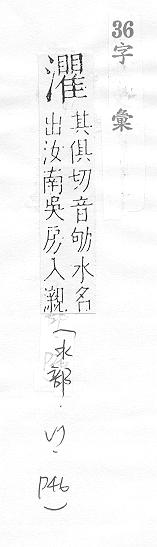 36字彙
灈
其俱切音劬水名
出汝南吳房入瀙
(水部.
P46)